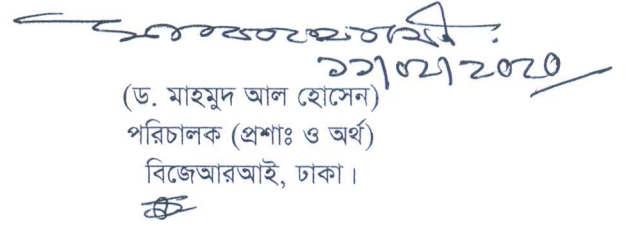 ১১/০২/২০২০
(ড. মাহমুদ আল হোসেন)
পরিচালক (প্রশাঃ ও অর্থ)
বিজেআরআই, ঢাকা।